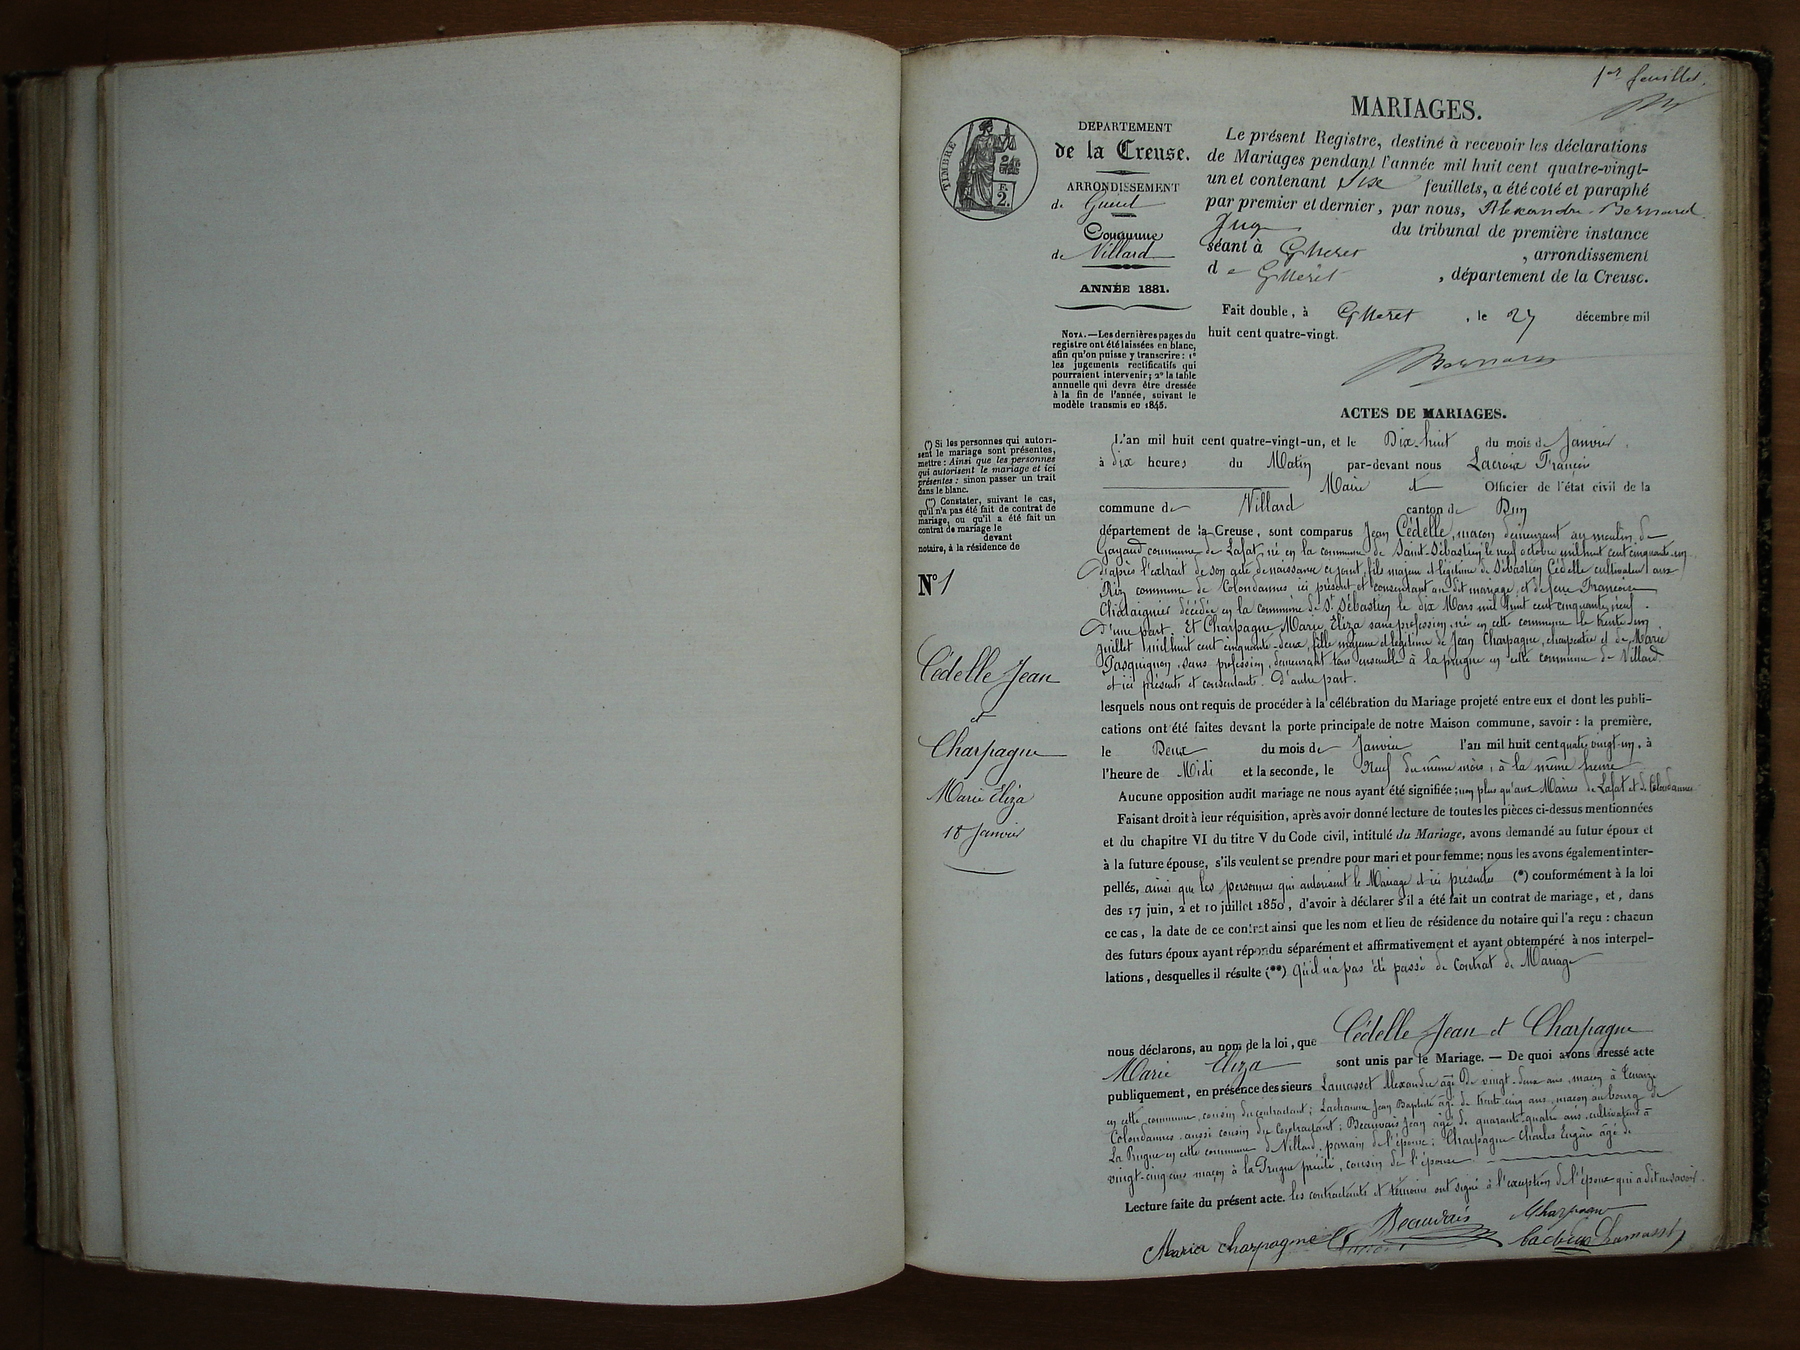 1er feuillet.
MARIAGES.
TIMBRE
F.
2.
DEPARTEMENT
de la Creuse.
ARRONDISSEMENT
de Guéret
Commune
de Villard
ANNÉE 1881.
Le présent Registre, destiné à recevoir les déclarations
de Mariages pendant l'année mil huit cent quatre-vingt-
un et contenant Six feuillets, a été coté et paraphé
par premier et dernier, par nous, Alexandre Bernard
Juge du tribunal de première instance
séant à Guéret , arrondissement
de Guéret , département de la Creuse.
Fait double, à Guéret , le 27 décembre mil
huit cent quatre-vingt.
Bernard
NOTA.—Les dernières pages du
registre ont été laissées en blanc,
afin qu'on puisse y transcrire : 1°
les jugements rectificatifs qui
pourraient intervenir; 2° la table
annuelle qui devra être dressée
à la fin de l'année, suivant le
modèle transmis en 1845.
(*) Si les personnes qui autori-
sent le mariage sont présentes,
mettre : Ainsi que les personnes
qui autorisent le mariage et ici
présentes : sinon passer un trait
dans le blanc.
(**) Constater, suivant le cas,
qu'il n'a pas été fait de contrat de
mariage, ou qu'il a été fait un
contrat de mariage le
devant
notaire, à la résidence de
N° 1
Cédelle Jean
et
Charpagne
Marie Eliza
18 Janvier
ACTES DE MARIAGES.
L'an mil huit cent quatre-vingt-un, et le Dix-huit du mois de Janvier,
à dix heures du Matin par-devant nous Lacroix François
Maire et Officier de l'état civil de la
commune de Villard canton de Dun
département de la Creuse, sont comparus Jean Cédelle, maçon demeurant au moulin de
Gayaud commune de Lafat, né en la commune de Saint-Sébastien le neuf octobre mil huit cent cinquante-un
d'après l'extrait de son acte de naissance ci joint, fils majeur et légitime de Sébastien Cédelle cultivateur aux
Riz commune de Colondannes ici présent et consentant au dit mariage, et de feue Françoise
Chataignier décédée en la commune de St Sébastien le dix Mars mil huit cent cinquante neuf.
D'une part. Et Charpagne Marie Eliza sans profession, née en cette commune le trente un
juillet mil huit cent cinquante-deux, fille majeure et légitime de Jean Charpagne, charpentier et de Marie
Pasquignon, sans profession, demeurant tous ensemble à la prugne en cette commune de Villard
et ici présents et consentants. D'autre part.
lesquels nous ont requis de procéder à la célébration du Mariage projeté entre eux et dont les publi-
cations ont été faites devant la porte principale de notre Maison commune, savoir : la première,
le Deux du mois de Janvier l'an mil huit cent quatre vingt-un, à
l'heure de Midi et la seconde, le Neuf du même mois, à la même heure
Aucune opposition audit mariage ne nous ayant été signifiée; non plus qu'aux Maires de Lafat et de Colondannes
Faisant droit à leur réquisition, après avoir donné lecture de toutes les pièces ci-dessus mentionnées
et du chapitre VI du titre V du Code civil, intitulé du Mariage, avons demandé au futur époux et
à la future épouse, s'ils veulent se prendre pour mari et pour femme; nous les avons également inter-
pellés, ainsi que les personnes qui autorisent le Mariage et ici présentes (*) conformément à la loi
des 17 juin, 2 et 10 juillet 1850, d'avoir à déclarer s'il a été fait un contrat de mariage, et, dans
ce cas, la date de ce contrat ainsi que les nom et lieu de résidence du notaire qui l'a reçu : chacun
des futurs époux ayant répondu séparément et affirmativement et ayant obtempéré à nos interpel-
lations, desquelles il résulte (**) qu'il n'a pas été passé de Contrat de Mariage
nous déclarons, au nom de la loi, que Cédelle Jean et Charpagne
Marie Eliza sont unis par le Mariage. — De quoi avons dressé acte
publiquement, en présence des sieurs Lamasset Alexandre âgé De vingt-deux ans, maçon à
en cette commune, cousin du contractant; Jean Baptiste âgé de trente cinq ans, maçon au bourg de
Colondannes aussi cousin du Contractant; Beauvais Jean âgé de quarante-quatre ans, cultivateur à
La Prugne en cette commune de Villard, parrain de l'épouse; Charpagne Charles Eugène âgé de
vingt-cinq ans maçon à la Prugne précité, cousin de l'épouse
Lecture faite du présent acte. les contractants et témoins ont signé à l'exception de l'épouse qui a dit ne savoir.
Marie charpagne Beauvais